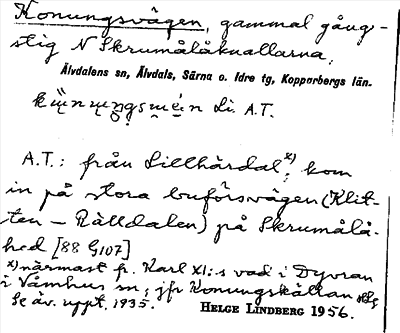 Konungsvägen, gammal gång-
stig N Skrumålåknallarna,
Älvdalens sn, Älvdals, Särna o. Idre tg, Kopparbergs län.
Li. A.T.
A.T.: från Lillhärdal x); kom
in på stora buförsvägen (Klit-
ten – Rälldalen) på Skrumålå-
hed [88 G107]
x) närmast fr. Karl XI:s vad i Dyvran
i Våmhus sn; jfr Konungskällan
Se äv. uppt. 1935. HELGE LINDBERG 1956.